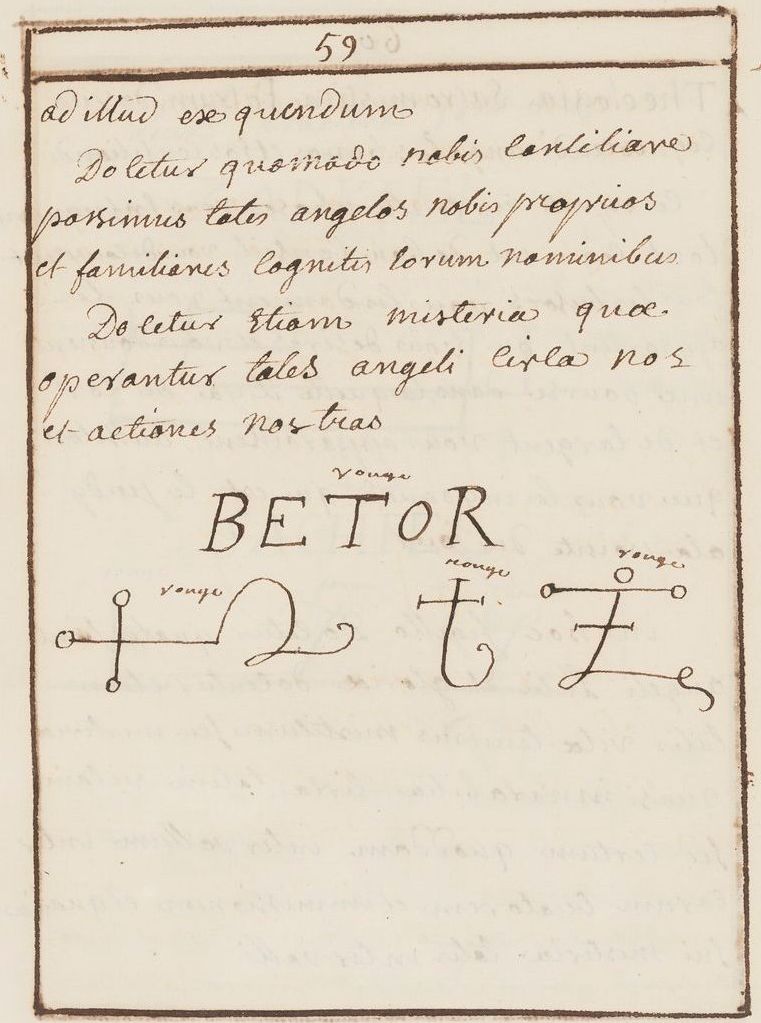 59
ad illud exequendum
Docetur quomodo nobis conciliare
possimus tales angelos nobis proprios
et familiares cognitis eorum nominibus
Docetur Etiam misteria quæ
operantur tales angeli circa nos
et actiones nostras
rouge
BETOR
rouge rouge rouge